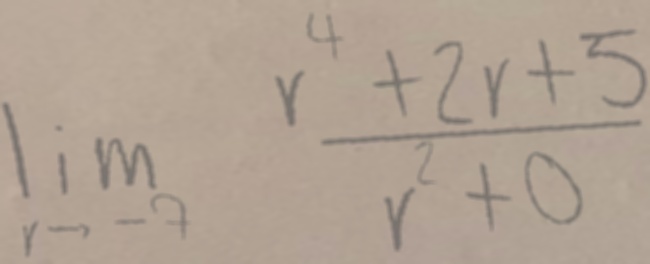 lim r→-7 (r^4 + 2r + 5)/(r^2 + 0)